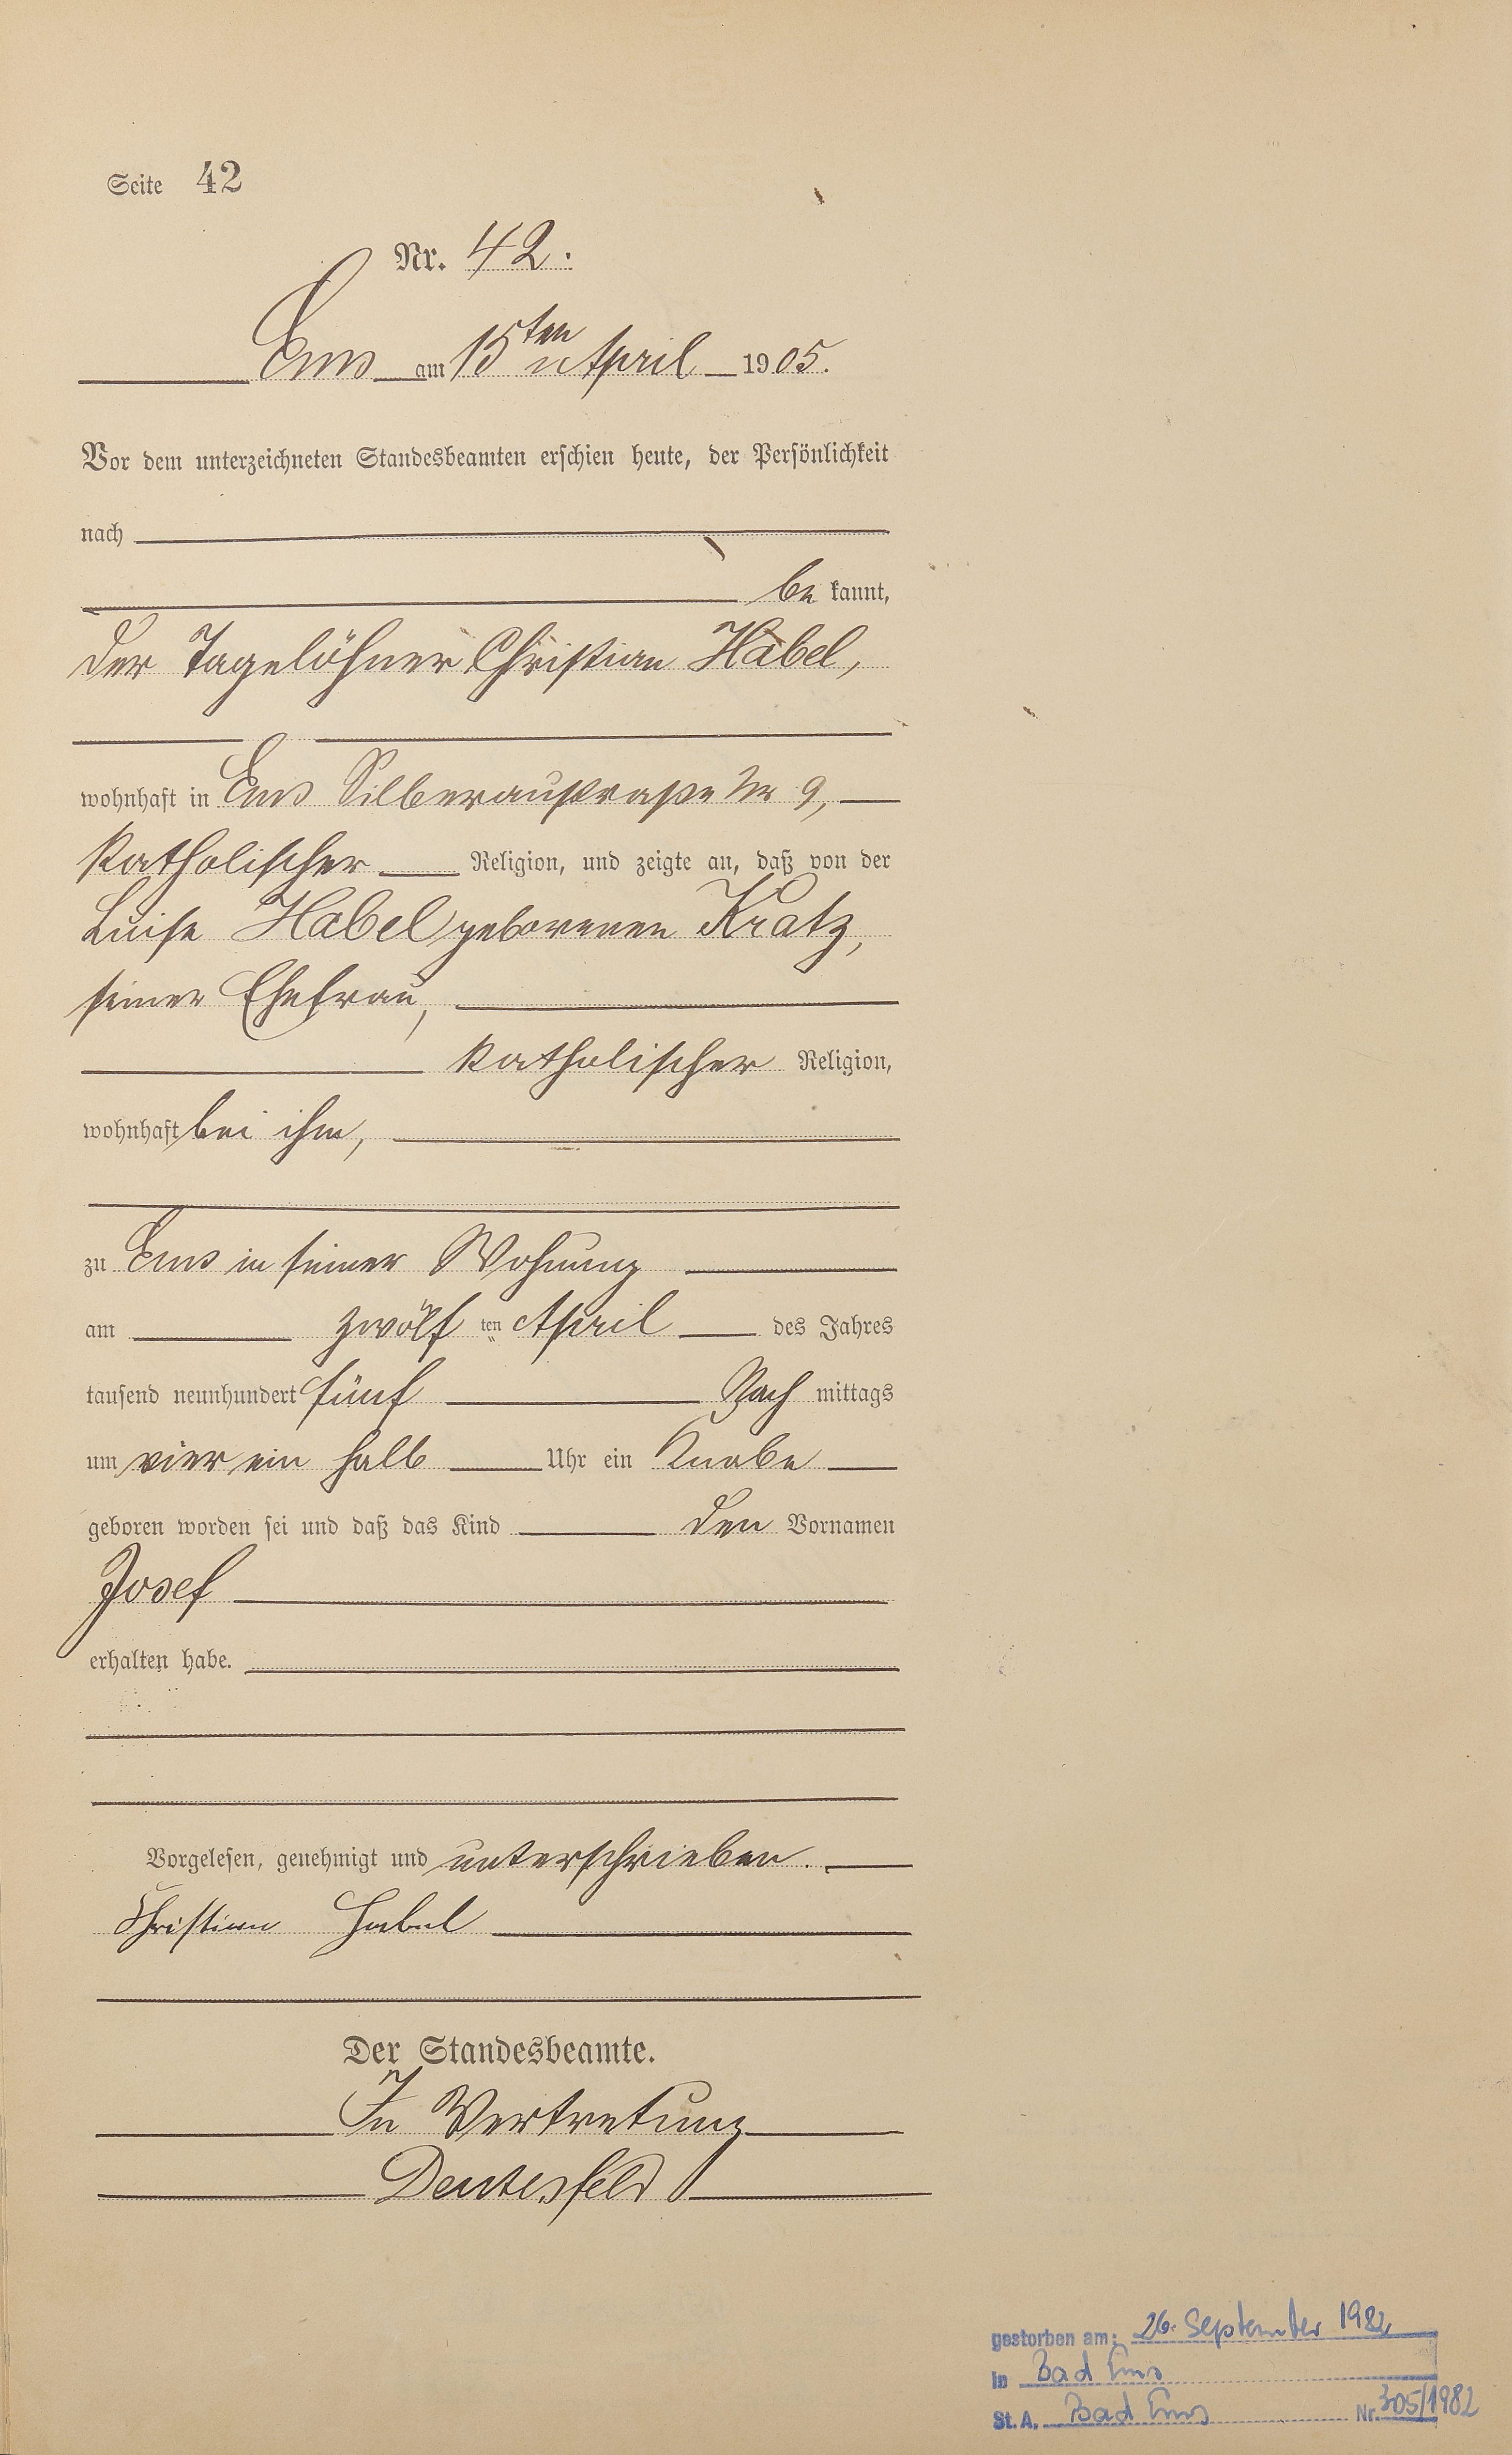 Seite 42
Nr. 42.
Ems am 15ten April 1905.
Vor dem unterzeichneten Standesbeamten erschien heute, der Persönlichkeit
nach
be kannt,
der Tagelöhner Christian Habel,
wohnhaft in Ems Silberaustraße Nr 9,
katholischer Religion, und zeigte an, daß von der
Luise Habel geborenen Kratz,
seiner Ehefrau,
katholischer Religion,
wohnhaft bei ihm,
zu Ems in seiner Wohnung
am zwölf ten April des Jahres
tausend neunhundert fünf Nach mittags
um vier ein halb Uhr ein Knabe
geboren worden sei und daß das Kind den Vornamen
Josef
erhalten habe.
Vorgelesen, genehmigt und unterschrieben.
Christian Habel
Der Standesbeamte.
In Vertretung
Deutesfeld
gestorben am: 26. September 1982
in Bad Ems
St. A. Bad Ems Nr. 305/1982